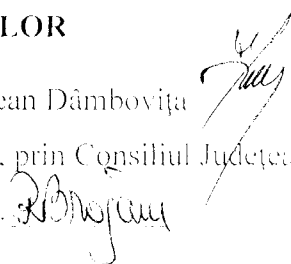 LOR
ean Dâmbovița
, prin Consiliul Județea